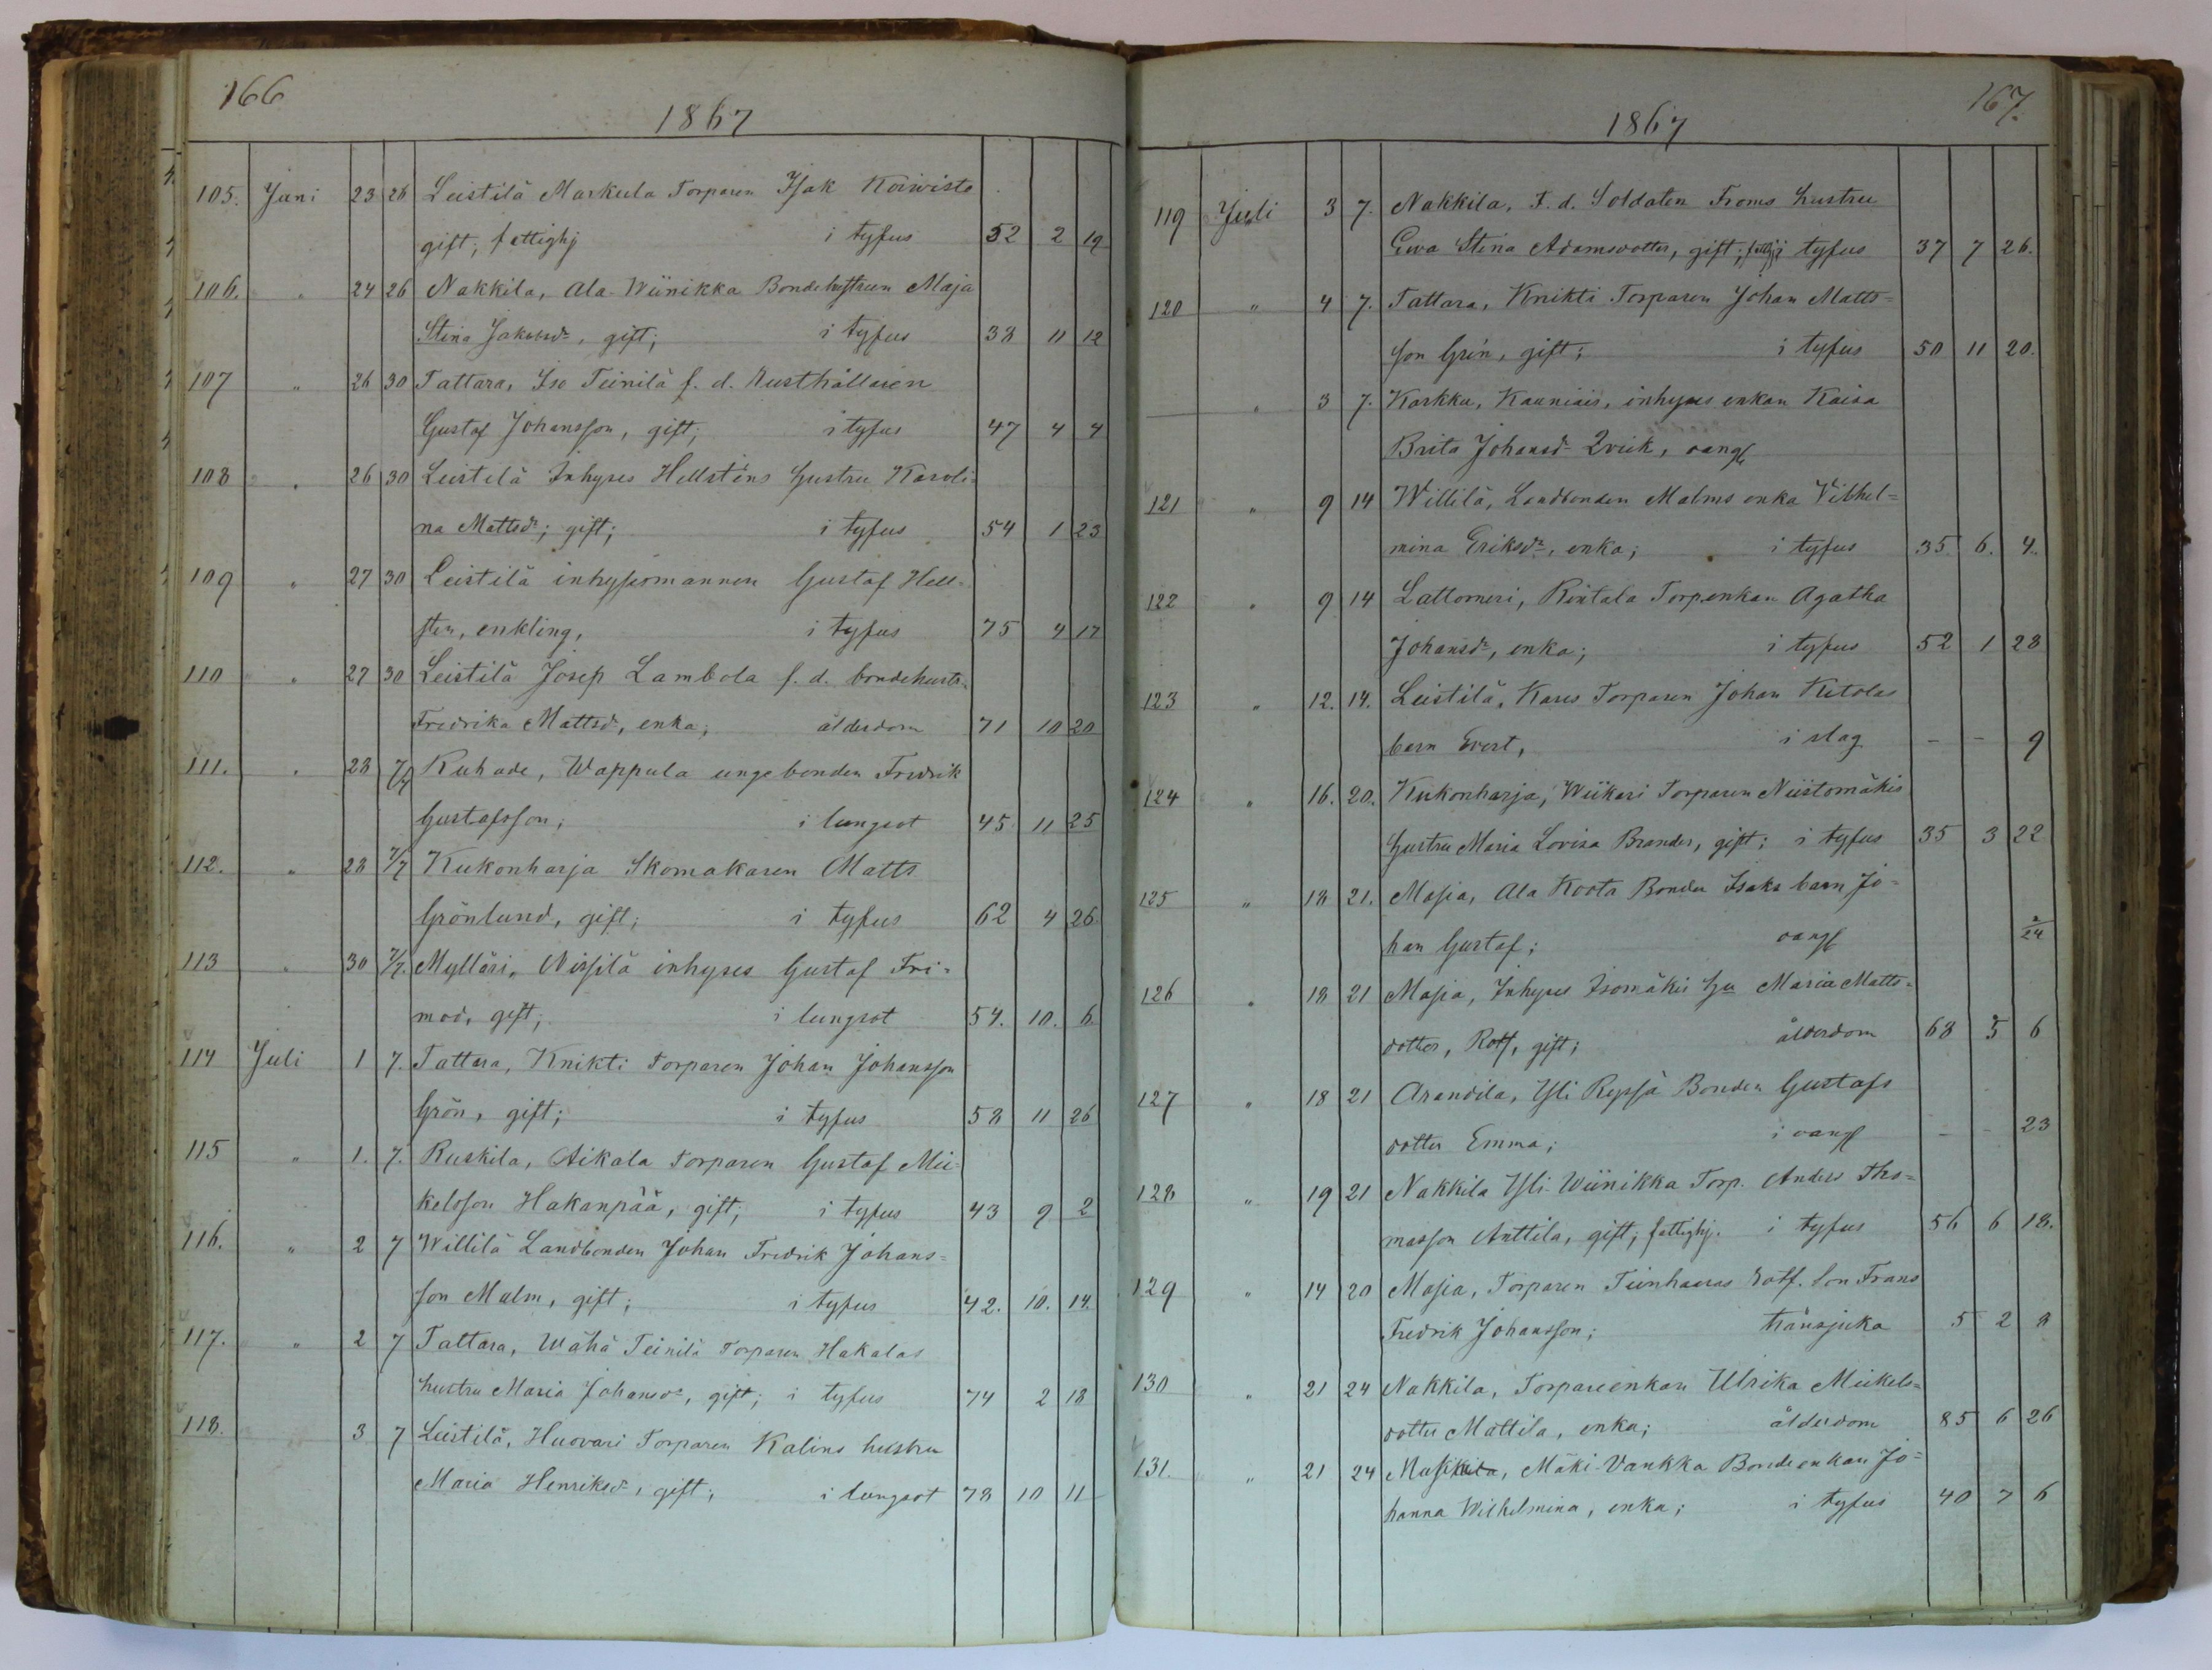 166
1867
105. Juni 23 26 Leistilä Markula Torparen Isak Koivisto
gift, fattighj i tyfus 52 2 19
106. " 24 26 Nakkila, Ala-Wiinikka Bondehustrun Maja
Stina Jakobsdr, gift; i tyfus 38 11 12
107 " 26 30 Tattara, Iso Teinilä f. d. Rusthållaren
Gustaf Johansson, gift; i tyfus 47 4 4
108 " 26 30 Leistilä Inhyses Hellsténs hustru Karoli-
na Mattsdr; gift; i tyfus 54 1 23
109 " 27 30 Leistilä inhysesmannen Gustaf Hell-
sten, enkling, i tyfus 75 4 17
110 " 27 30 Leistilä Josep Lambola f. d. bondehustr.
Fredrika Mattsd, enka; ålderdom 71 10 20
111. " 28 7/7 Fredrik
Gustafsson; i lungsot 45 11 25
112. " 28 7/7 Kukonharja Skomakaren Matts
Grönlund, gift; i tyfus 62 4 26
113 " 30 7/7 Mylläri, inhyses Gustaf Fri-
mod, gift; i lungsot 54. 10. 6.
114 Juli 1 7. Tattara, Knikti Torparen Johan Johansson
Grön, gift; i tyfus 58 11 26
115 " 1. 7. Ruskila, Aikala Torparen Gustaf Mi-
kelsson Hakanpää, gift; i tyfus 43 9 2
116. " 2 7 Willilä Landbonden Johan Fredrik Johans-
son Malm, gift; i tyfus 42. 10. 14.
117. " 2 7 Tattara, Wähä Teinilä Torparen Hakalas
hustru Maria Johansdr, gift; i tyfus 74 2 18
118. 3 7 Leistilä, Huovari Torparen Kalins hustru
Maria Henriksdr, gift; i lungsot 78 10 11
167.
1867
119 Juli 3 7. Nakkila, F. d. Soldaten Froms hustru
Ewa Stina Adamsdotter, gift; fattighj i tyfus 37 7 26.
120 " 4 7. Tattara, Knikti Torparen Johan Matts-
son Grén, gift; i tyfus 50 11 20.
" 3 7. Karkku, Kauniais, inhyses enkan Kaisa
Brita Johansd Qvick, oangf
121 " 9 14 Willilä, Landbonden Malms enka Vilhel-
mina Eriksdr, enka; i tyfus 35. 6. 4.
122 " 9 14 Lattomeri, Rintala Torp.enkan Agatha
Johansdr, enka; i tyfus 52 1 28
123 " 12. 14. Leistilä, Kares Torparen Johan Ketolas
barn Evert, i slag - - 9
124 " 16. 20. Kukonharja, Wiikari Torparen Niistomäkis
hustru Maria Lovisa Brander, gift; i tyfus 35 3 22
125 " 18 21. Masia, Ala Koota Bonden Isaks barn Jo-
han Gustaf; oangf 2/24
126 " 18 21 Masia, Inhyses Isomäkis hu Maria Matts-
dotter, Rotf, gift; ålderdom 68 5 6
127 " 18 21 Arandila, Yli Bonden Gustafs
dotter Emma; i oangf - - 23
128 " 19 21 Nakkila Yli-Wiinikka Torp. Anders Tho-
masson Anttila, gift; fattighj. i tyfus 56 6 18.
129 " 14 20 Masia, Torparen Son Frans
Fredrik Johansson; 5 2 8
130 " 21 24 Nakkila, Torpareenkan Ulrika Mickels-
dotter Mattila, enka; ålderdom 85 6 26
131. " 21 24 Mäki-Vankka Bondeenkan Jo-
hanna Wilhelmina, enka; i tyfus 40 7 6